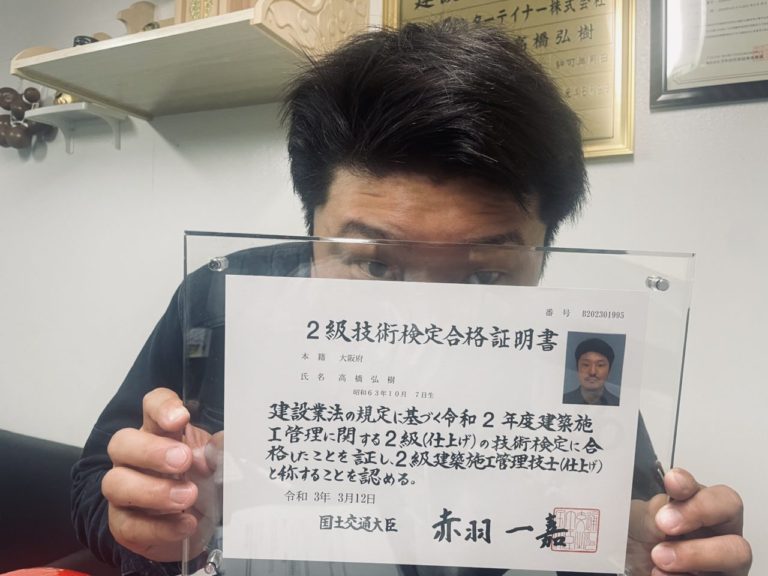 ターテイナー株式会社
高橋弘樹
番 号 B202301995
2級技術検定合格証明書
本 籍 大阪府
氏 名 高 橋 弘 樹
昭和63年10月 7日生
建設業法の規定に基づく令和2年度建築施
工管理に関する2級(仕上げ)の技術検定に合
格したことを証し、2級建築施工管理技士(仕上げ)
と称することを認める。
令和 3年 3月12日
国土交通大臣 赤羽 一嘉